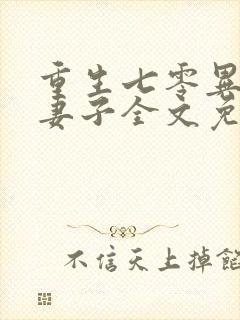 重生七零異
妻子全文免
不信天上掉餡